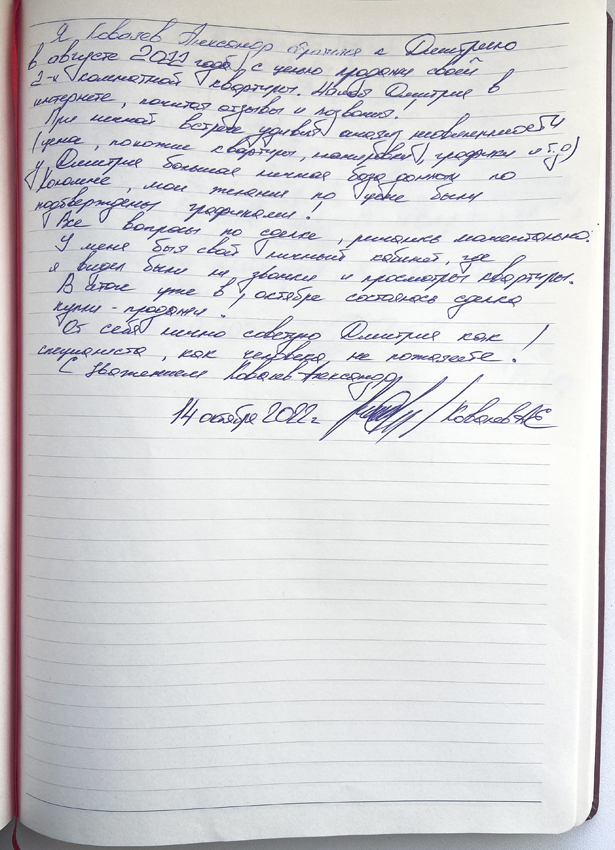 Я Ковалев Александр обратился к Дмитрию
в августе 2022 года, с целью продажи своей
2-х комнатной квартиры. Нашел Дмитрия в
интернете, почитал отзывы и позвонил.
При личной встрече удивил анализ недвижимости
(цена, похожие квартиры, планировки, графики и т.д)
У Дмитрия большая личная база данных по
Коломне, мои желания по цене были
подтверждены графиками!
Все вопросы по сделке, решались моментально.
У меня был свой личный кабинет, где
я видел были ли звонки и просмотры квартиры.
В итоге уже в октябре состоялась сделка
купли-продажи.
От себя лично советую Дмитрия как
специалиста, как человека, не пожалеете!
С Уважением Ковалев Александр
14 октября 2022г Ковалев АЕ